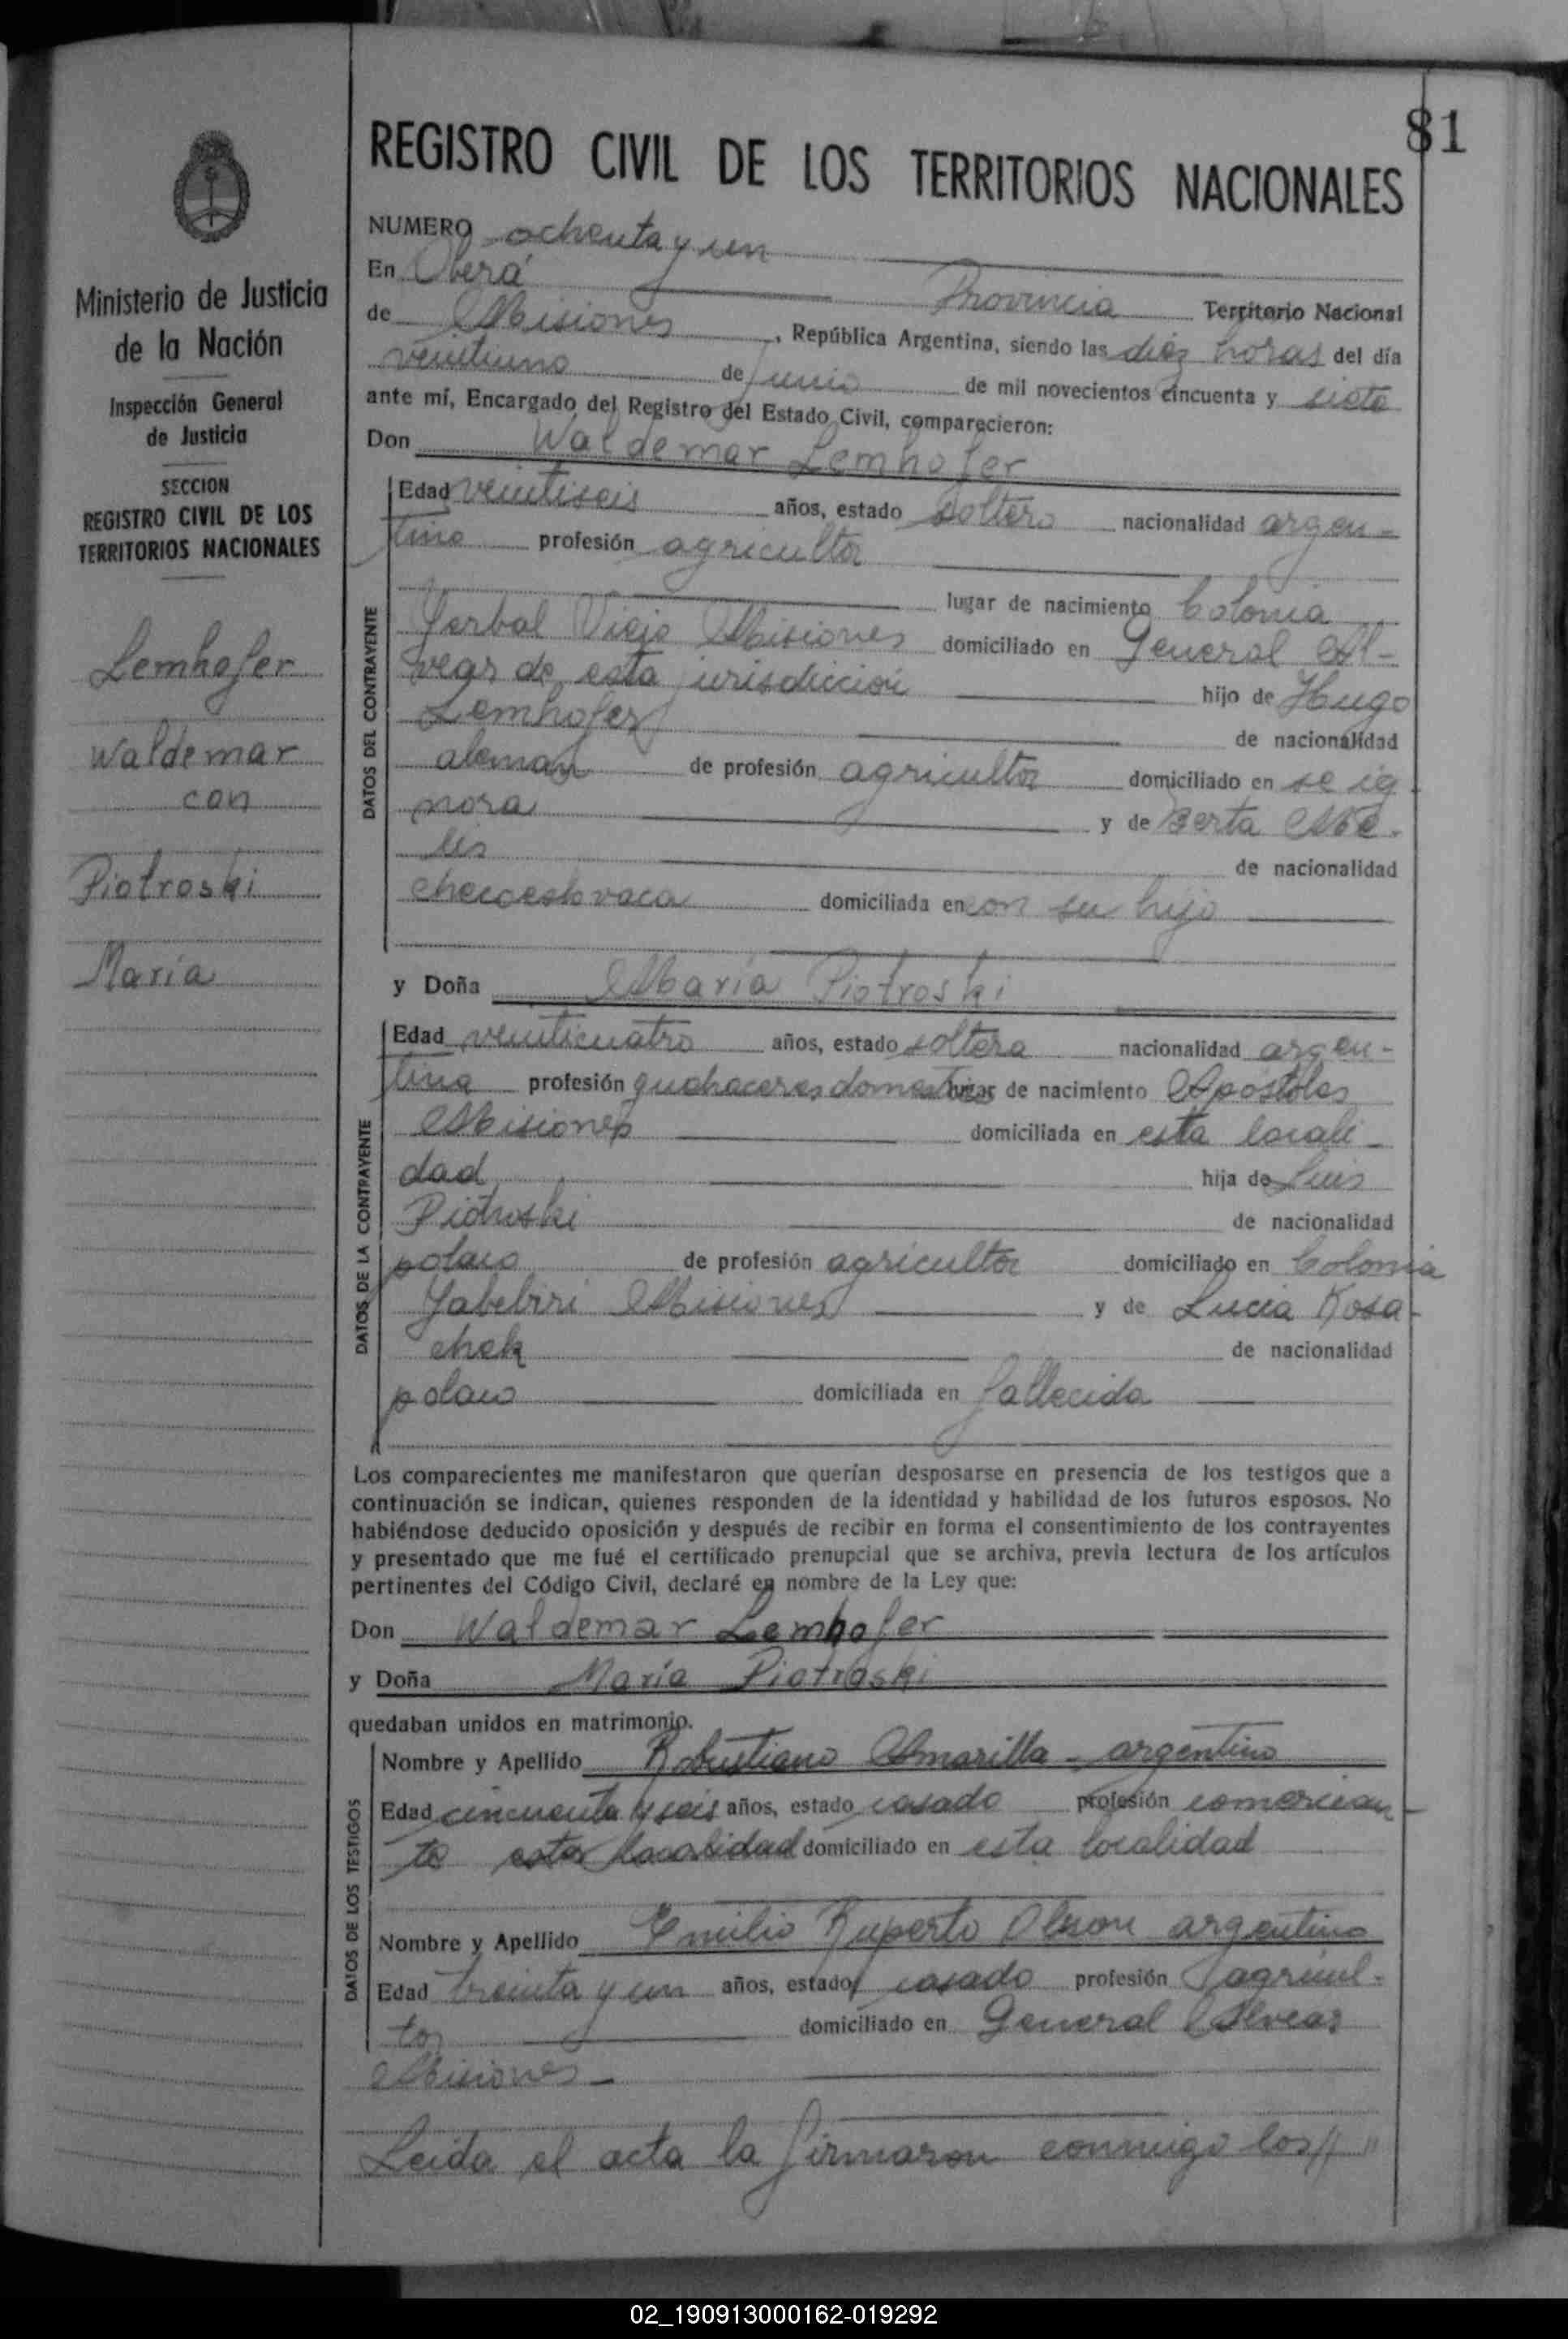 81
REGISTRO CIVIL DE LOS TERRITORIOS NACIONALES
Ministerio de Justicia
de la Nación
Inspección General
de Justicia
SECCION
REGISTRO CIVIL DE LOS
TERRITORIOS NACIONALES
Lemhofer
Waldemar
con
Piotroski
María
NUMERO ochenta y un
En Oberá Provincia Territorio Nacional
de Misiones, República Argentina, siendo las diez horas del día
veintiuno de Junio de mil novecientos cincuenta y siete
ante mí, Encargado del Registro del Estado Civil, comparecieron:
Don Waldemar Lemhofer
DATOS DEL CONTRAYENTE
Edad veintiseis años, estado soltero nacionalidad argen-
tino profesión agricultor
lugar de nacimiento Colonia
Yerbal Viejo Misiones domiciliado en General Al-
vear de esta jurisdicción hijo de Hugo
Lemhofer de nacionalidad
aleman de profesión agricultor domiciliado en se ig-
nora y de Berta
de nacionalidad
checoeslovaca domiciliada en con su hijo
y Doña María Piotroski
DATOS DE LA CONTRAYENTE
Edad veinticuatro años, estado soltera nacionalidad argen-
tina profesión quehaceres domesticos lugar de nacimiento Apóstoles
Misiones domiciliada en esta locali-
dad hija de Luis
Piotroski de nacionalidad
polaco de profesión agricultor domiciliado en Colonia
Yabebiri Misiones y de Lucia Kosa-
chek de nacionalidad
polaco domiciliada en fallecida
Los comparecientes me manifestaron que querían desposarse en presencia de los testigos que a
continuación se indican, quienes responden de la identidad y habilidad de los futuros esposos. No
habiéndose deducido oposición y después de recibir en forma el consentimiento de los contrayentes
y presentado que me fué el certificado prenupcial que se archiva, previa lectura de los artículos
pertinentes del Código Civil, declaré en nombre de la Ley que:
Don Waldemar Lemhofer
y Doña María Piotroski
quedaban unidos en matrimonio.
DATOS DE LOS TESTIGOS
Nombre y Apellido Robustiano Amarilla - argentino
Edad cincuenta y seis años, estado casado profesión comercian-
te esta localidad domiciliado en esta localidad
Nombre y Apellido Emilio Ruperto Olsson argentino
Edad treinta y un años, estado casado profesión agricul-
tor domiciliado en General Alvear
Misiones
Leida el acta la firmaron conmigo los//"
02_190913000162-019292